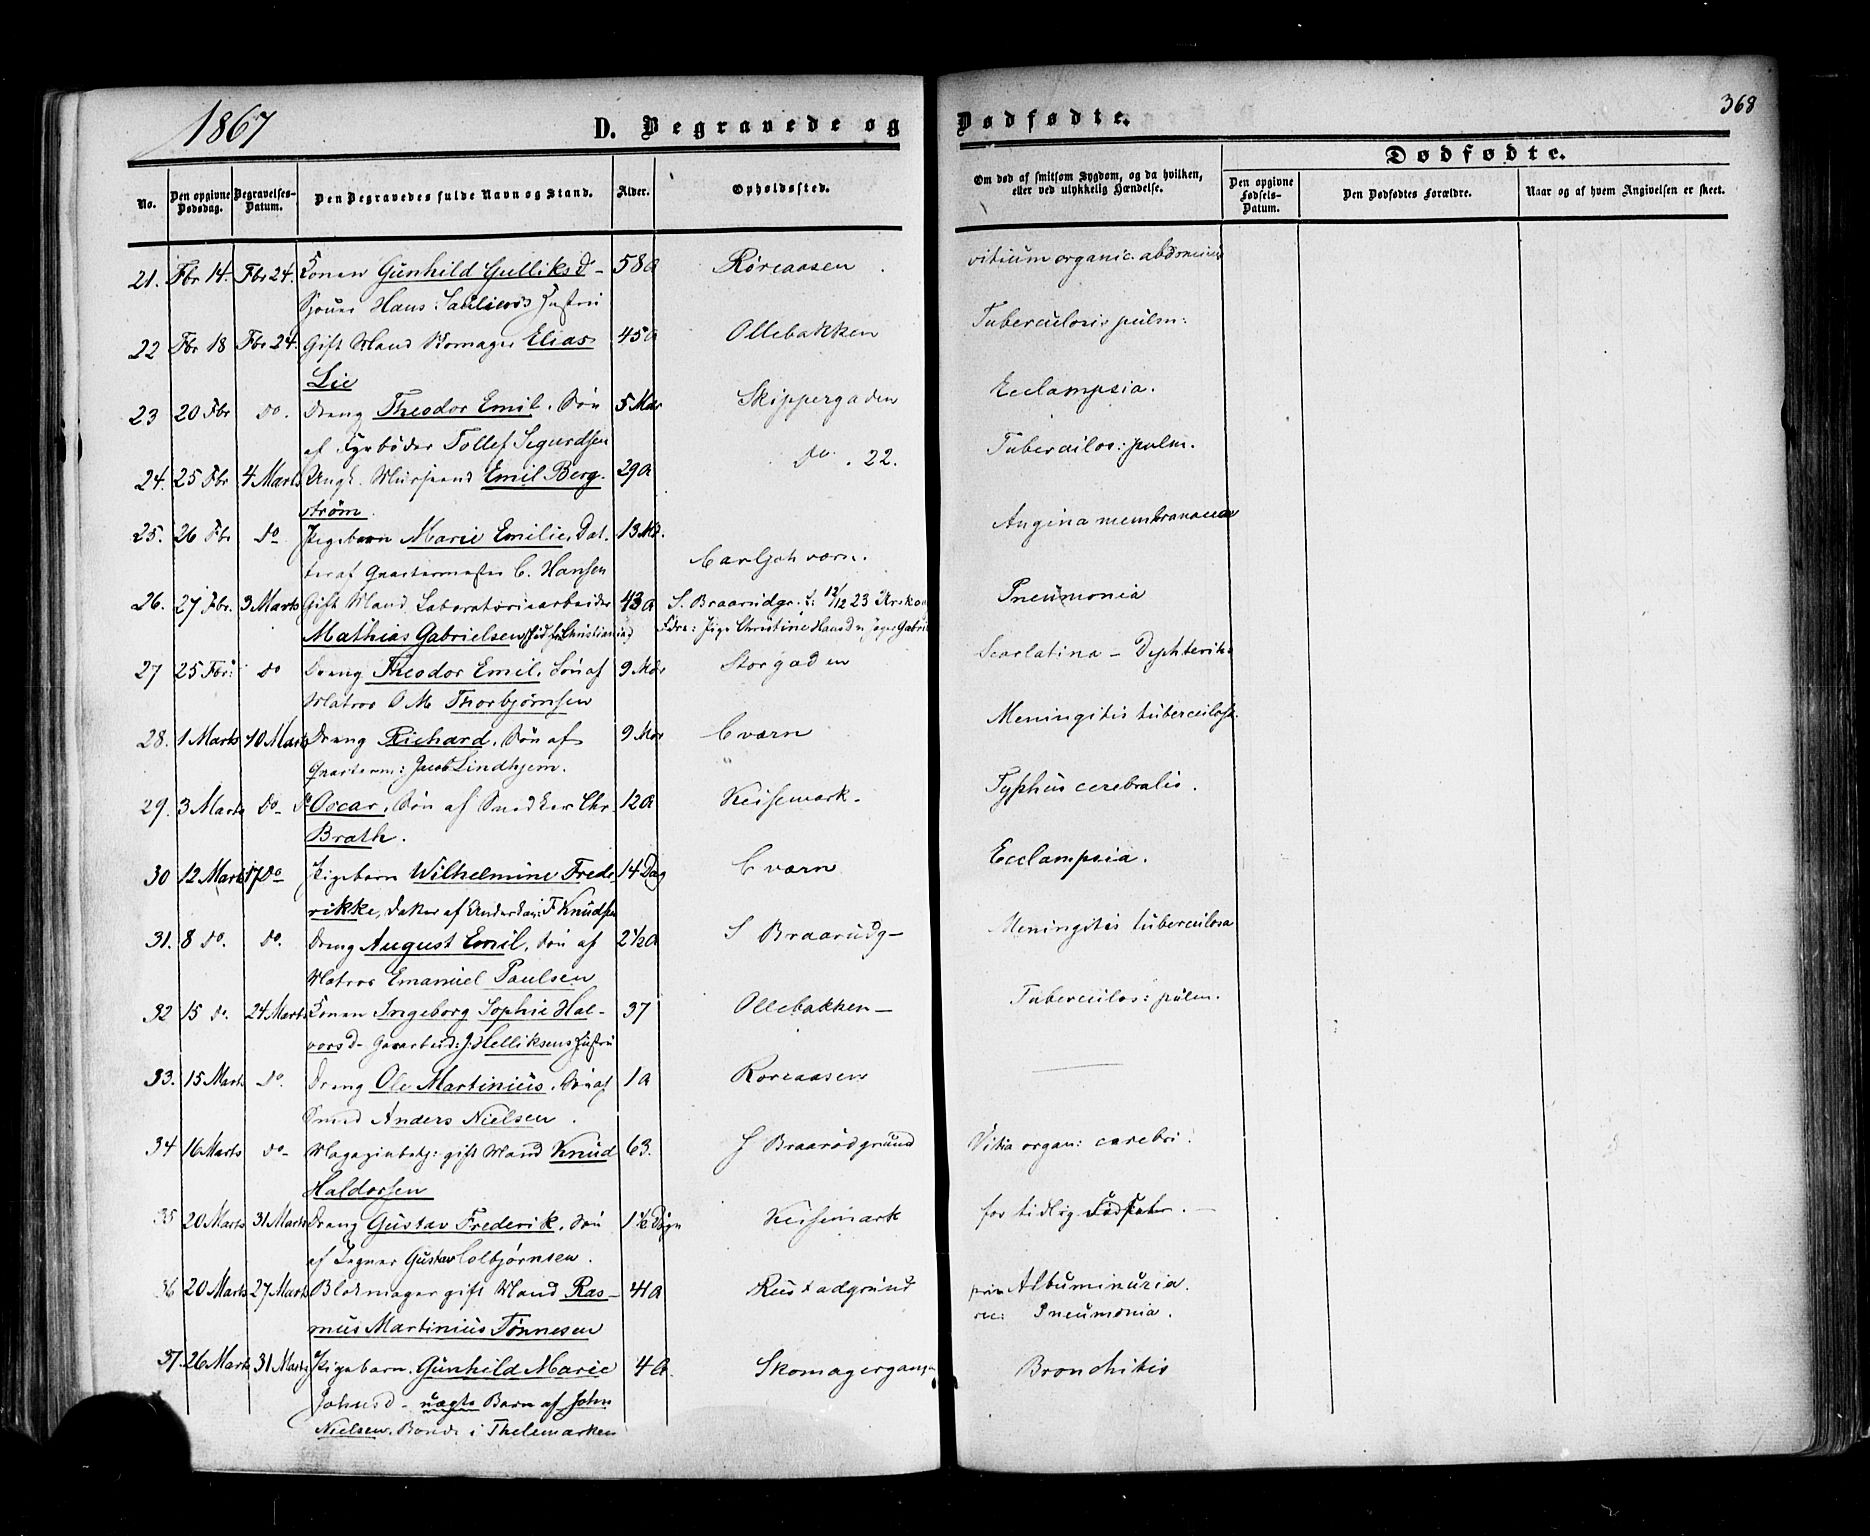 1867
368
D. Begravede og Dødfødte.
Dødfødte.
No.
Den opgivne Dødsdag.
Begravelses-Datum.
Den Begravedes fulde Navn og Stand.
Alder.
Opholdssted.
Om død af smitsom Sygdom, og da hvilken, eller ved ulykkelig Hændelse.
Den opgivne Fødsels-Datum.
Den Dødfødtes Forældre.
Naar og af hvem Angivelsen er skeet.
21. Fbr 14. Fbr 24. Konen Gunhild Gulliksd- 58 a Røreaasen . vitium organic. abdominis
Hans
22 Fbr 18 Fbr 24. Gift Mand Skomager Elias 45 a Ollebakken Tuberculosis pulm:
Lie
23 20 Fbr do. Dreng Theodor Emil. Søn 5 Mdr Skippergaden Ecclampsia.
af Fyrbøder Tollef Sigurdsen
24. 25 Fbr 4 Marts Ungk. Emil Berg- 29 a do . 22. Tuberculos: pulm.
strøm.
25. 26 Fbr do Pigebarn Marie Emilie, Dat- 13 Md. Carljohsværn. Angina membranacea
ter af Quartermester C. Hansen
26. 27 Fbr. 3 Marts Gift Mand Laboratoriearbeider 43 a S. Braarudgr. f: 12/12 23 Pneumonia
Mathias Gabrielsen, fød i Christiania Fdre: Pige Christine Hansd
27 25 Fbr: do Dreng Theodor Emil. Søn af 9 Mdr Storgaden Scarlatina - Dyphteritis
Matros O M Thorbjørnsen
28. 1 Marts 10 Marts Dreng Richard. Søn af 9 Mdr C værn Meningitis tuberculosa.
Quarterm: Jacob Lindhjem.
29. 3 Marts do- Dr Oscar, Søn af Snedker Chr. 12 a Keisemark. Typhus cerebralis.
Brath.
30 12 Marts 17 do Pigebarn Wilhelmine Frede- 14 Dag C værn Ecclampsia.
rikke, Datter af T Knudsen
31. 8 do. do. Dreng August Emil. Søn af 2 1/2 a S Braarudg- Meningitis tuberculosa
Matros Emanuel Paulsen
32 15 do. 24 Marts Konen Ingeborg Sophie Hal- 37 Ollebakken- Tuberculos: pulm.
vorsd- Gaarbeid: J. Helliksens Hustru
33. 15 Marts do. Dreng Ole Martinius. Søn af 1 a Roreaasen
Smed Anders Nielsen .
34 16 Marts do- Magazinbetj: gift Mand Knud 63. S Braarødgrund Vitia organ: cerebri.
Haldorsen
35 20 Marts 31 Marts Dreng Gustav Frederik. Søn 1 1/2 Døgn Keisemark for tidlig Født.
af Tegner Gustav Colbjørnsen.
36 20 Marts 27 Marts Blokmager gift Mand Ras- 41 a Rustadgrund prim Albuminuria.
mus Martinius Tønnesen Pneumonia.
37. 26 Marts 31 Marts Pigebarn. Gunhild Marie 4 a. Skomagergangen Bronchitis
Johnsd- uægte Barn af John
Nielsen. Bonde i Thelemarken